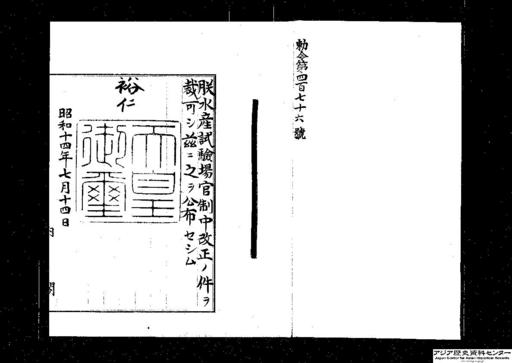 勅令第四百七十六號
朕水産試驗場官制中改正ノ件ヲ
裁可シ茲ニ之ヲ公布セシム
裕仁
天皇
御璽
昭和十四年七月十四日
内閣
アジア歴史資料センター
Japan Center for Asian Historical Records